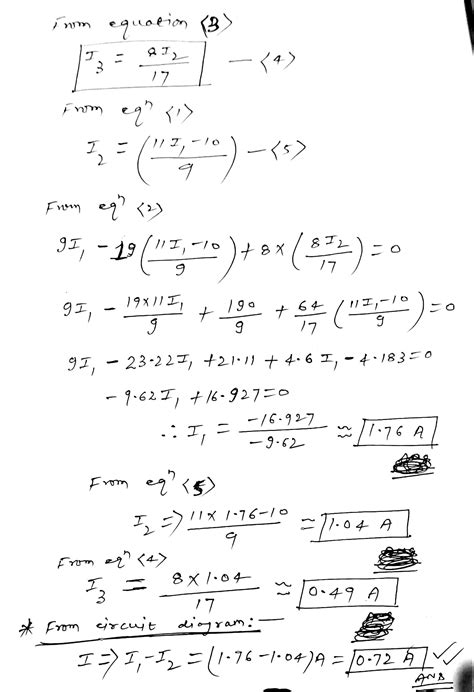 From equation <3>
I₃ = 8I₂/17 — <4>
From eqⁿ <1>
I₂ = (11I₁-10/9) — <5>
From eqⁿ <2>
9I₁ - 19(11I₁-10/9) + 8×(8I₂/17) = 0
9I₁ - 19×11I₁/9 + 190/9 + 64/17 (11I₁-10/9) = 0
9I₁ - 23.22I₁ + 21.11 + 4.6 I₁ - 4.183 = 0
- 9.62I₁ + 16.927 = 0
∴ I₁ = -16.927/-9.62 ≈ 1.76 A
From eqⁿ <5>
I₂ => 11×1.76-10/9 ≈ 1.04 A
From eqⁿ <4>
I₃ = 8×1.04/17 ≈ 0.49 A
* From circuit diagram:—
I => I₁-I₂ = (1.76-1.04)A = 0.72 A ✓✓
ANS